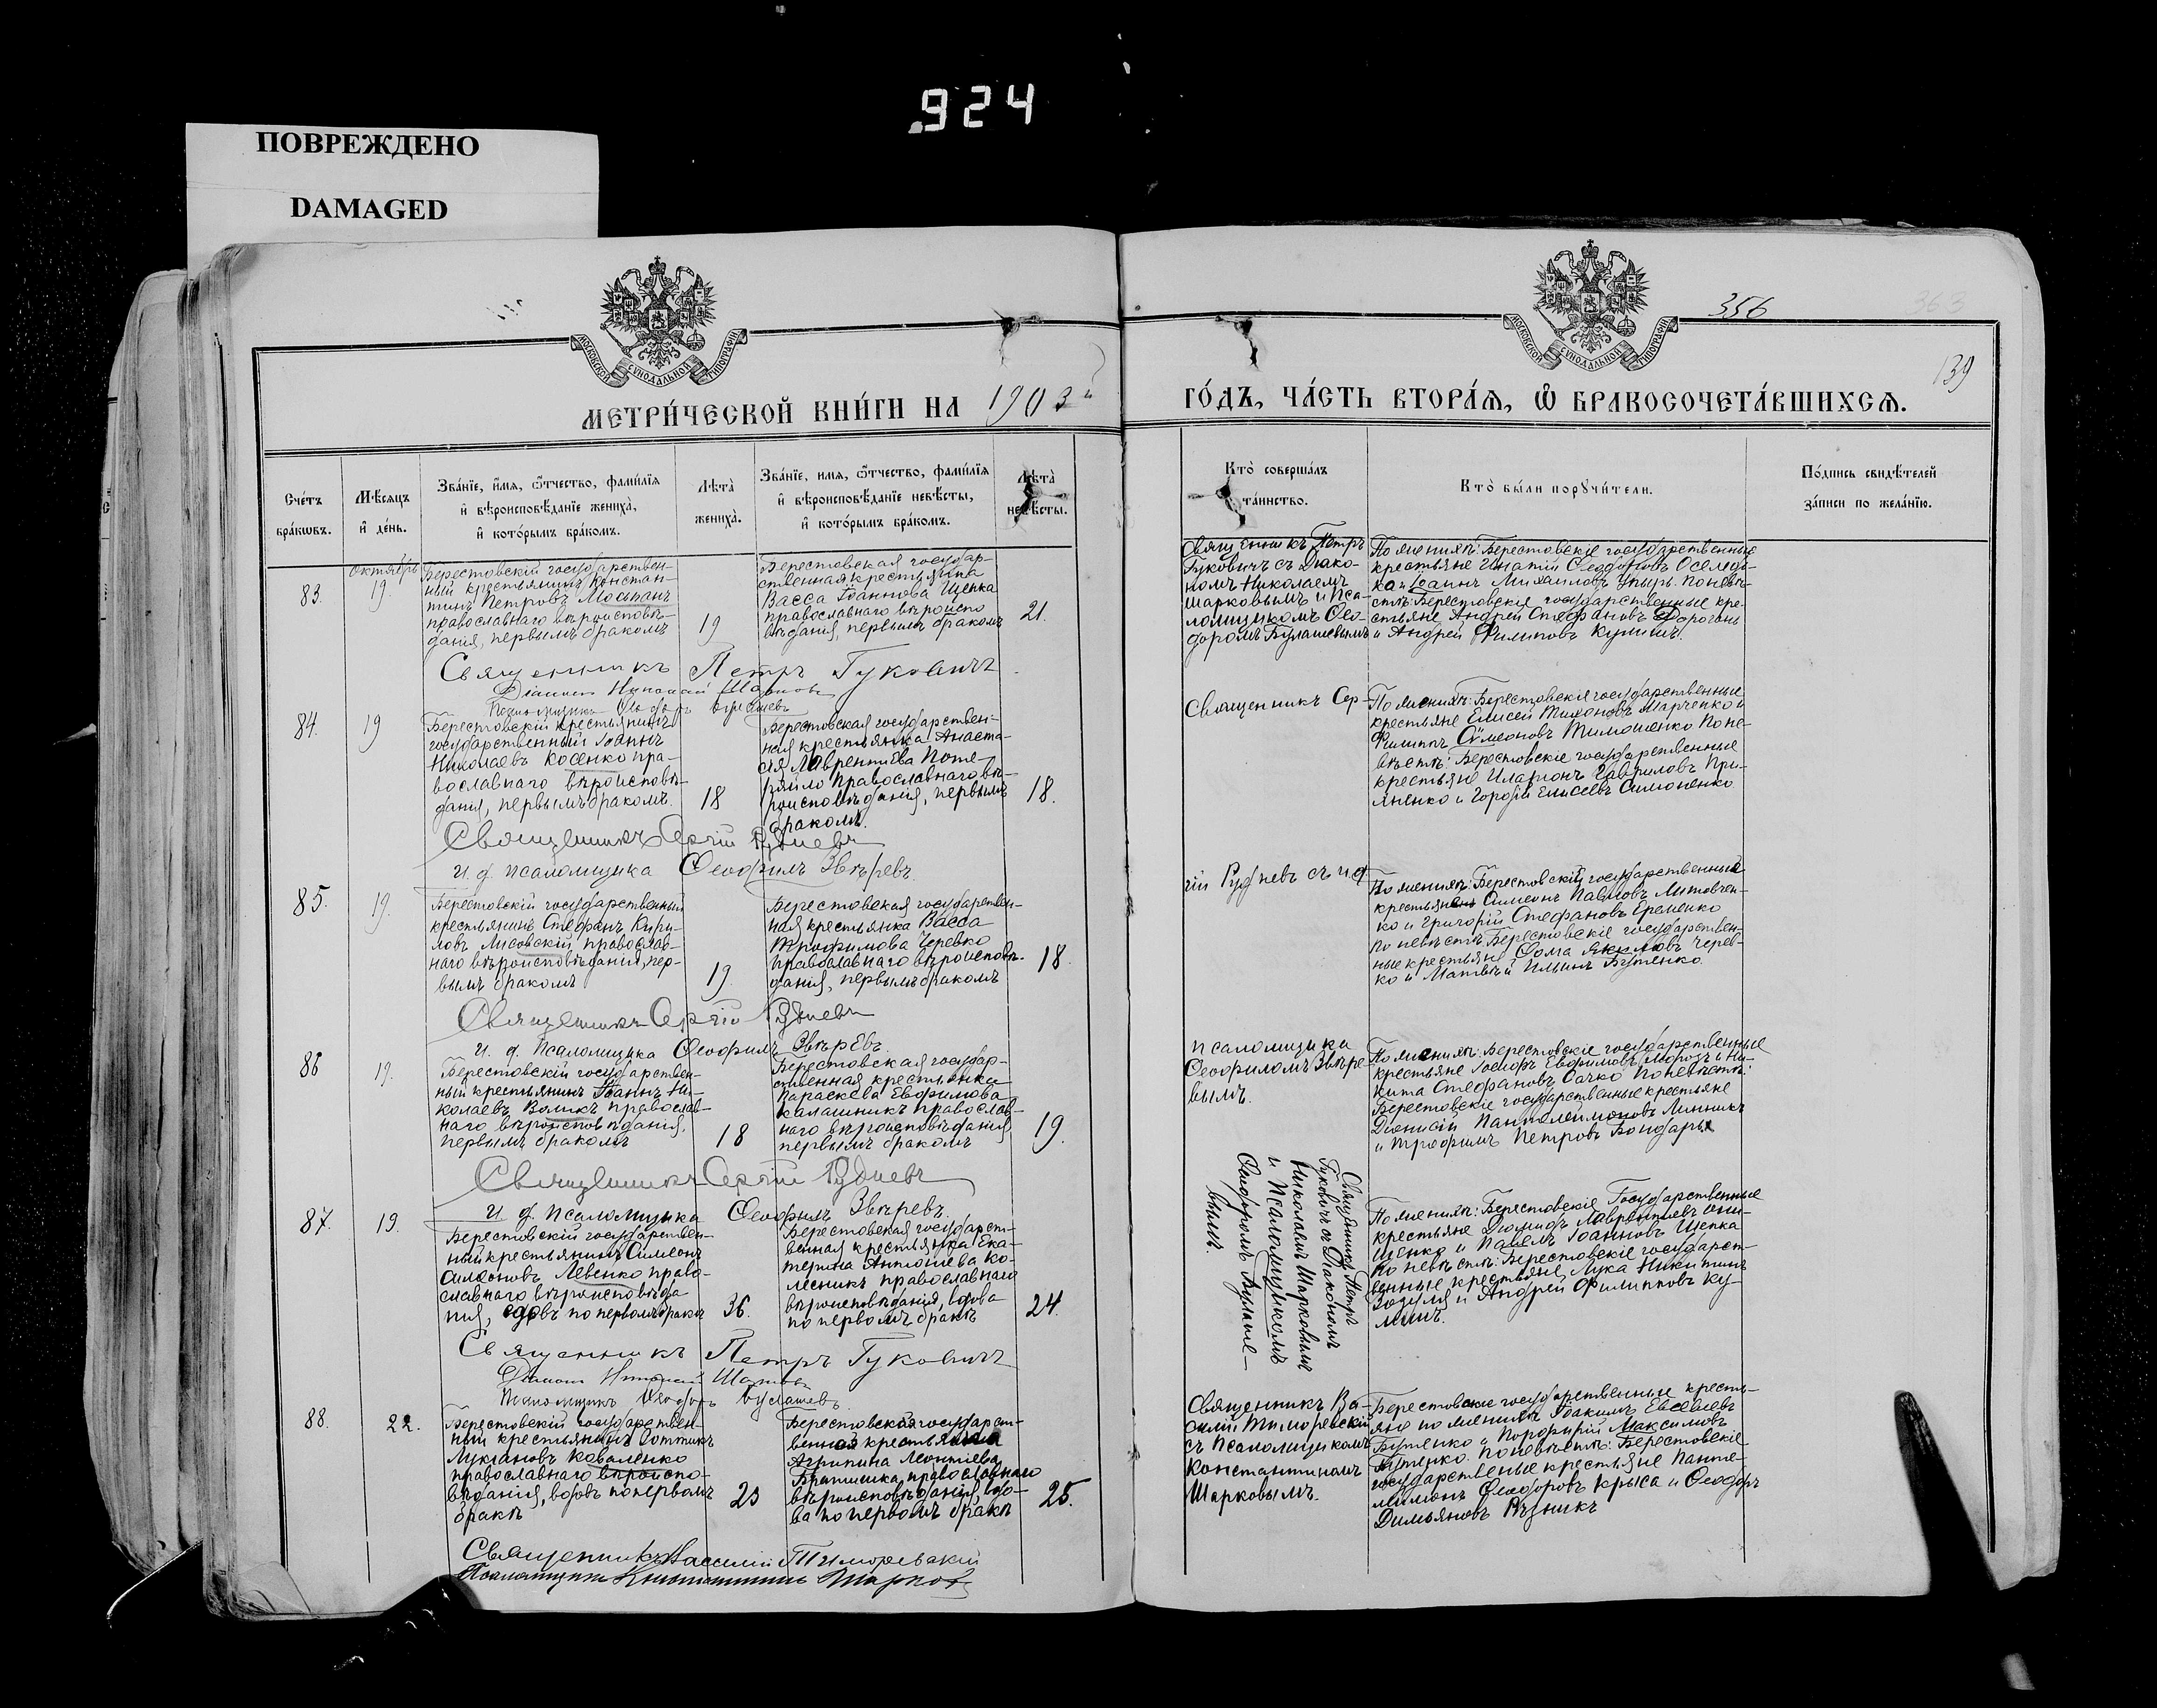 924
ПОВРЕЖДЕНО
DAMAGED
МОСКОВСКОЙ СѴНОДАЛЬНОЙ ТИПОГРАФІИ
МОСКОВСКОЙ СѴНОДАЛЬНОЙ ТИПОГРАФІИ
356
363
139
МЕТРИ́ЧЕСКОЙ КНИ́ГИ НА 1903й
ГО́ДЪ, ЧА́СТЬ ВТОРА́Я, Ѡ БРАКОСОЧЕТА́ВШИХСЯ.
Сче́тъ
бра́кѡвъ.
Мѣ́сяцъ
и҆ де́нь.
Зва́нїе, и҆́мя, ѻ҆́тчество, фами́лїя
и҆ вѣроисповѣ́данїе жениха̀,
и҆ кото́рымъ бра́комъ.
Лѣ́та̀
жениха̀.
Зва́нїе, имя, ѻ҆́тчество, фами́лїя
и҆ вѣроисповѣ́данїе невѣ́сты,
и҆ кото́рымъ бра́комъ.
Лѣ́та̀
невѣ́сты.
Кто̀ соверша́лъ
та́инство.
Кто̀ бы́ли порꙋчи́тели.
По́дпись свидѣ́телей
за́писи по жела́нїю.
83.
Октябрь
19.
Берестовскій государствен-
ный крестьянинъ Констан-
тинъ Петровъ Мостпанъ
православнаго вѣроисповѣ-
данія, первымъ бракомъ
19
Берестовская государ-
ственная крестьянка
Васса Іоаннова Щепка
православнаго вѣроиспо
вѣданія, первымъ бракомъ
21.
Священникъ Петръ
Гуковичъ съ Діако-
номъ Николаемъ
Шарковымъ и Пса-
ломщикомъ Ѳео-
доромъ Булашевымъ
По женихѣ: Берестовскіе государственные
крестьяне Игнатій Ѳеодоновъ Оселедь-
ко и Іоаннъ Михаиловъ Упырь. По невѣ-
стѣ: Берестовскіе государственные кре-
стьяне Андрей Стефановъ Дорогань
и Андрей Филиповъ Кулишъ.
Священникъ Петръ Гуковичъ
Діаконъ Николай Шарковъ
Псаломщикъ Ѳеодоръ Булашевъ
84.
19
Берестовскій крестьянинъ
государственный Іоаннъ
Николаевъ Косенко пра-
вославнаго вѣроисповѣ-
данія, первымъ бракомъ.
18
Берестовская государствен-
ная крестьянка Анаста-
сія Лаврентіева Поте-
ряйло Православнаго вѣ-
роисповѣданія, первымъ
бракомъ.
18.
Священникъ Сер-
По женихѣ: Берестовскіе государственные
крестьяне Елисей Тихоновъ Марченко и
Филиппъ Сѵмеоновъ Тимошенко По не-
вѣстѣ: Берестовскіе государственные
крестьяне Иларіонъ Гавриловъ При-
яненко и Гордій Елисеевъ Симоненко
Священникъ Сергій Рудневъ
И. д. псаломщика Ѳеофилъ Звѣревъ.
85.
19.
Берестовскій государственный
крестьянинъ Стефанъ Кири-
ловъ Лисовскій, православ-
наго вѣроисповѣданія, пер-
вымъ бракомъ
19.
Берестовская государствен-
ная крестьянка Васса
Трофимова Черевко
православнаго вѣроисповѣ-
данія, первымъ бракомъ
18.
гій Рудневъ съ и. д.
По женихѣ: Берестовскій государственный
крестьянинъ Симеонъ Павловъ Литовчен-
ко и Григорій Стефановъ Еременко
по невѣстѣ Берестовскіе государствен-
ные крестьяне Ѳома Якимовъ Черев-
ко и Матвѣй Ильинъ Бутенко.
Священникъ Сергій Рудневъ
И. д. Псаломщика Ѳеофилъ Звѣревъ.
86
19.
Берестовскій государствен-
ный крестьянинъ Іоаннъ Ни-
колаевъ Воликъ православ-
наго вѣроисповѣданія,
первымъ бракомъ
18
Берестовская государ-
ственная крестьянка
Параскева Евфимова
Калашникъ православ-
наго вѣроисповѣданія
первымъ бракомъ
19.
псаломщика
Ѳеофиломъ Звѣре-
вымъ.
По женихѣ: Берестовскіе государственные
крестьяне Іосифъ Евфимовъ Морозъ и Ни-
кита Стефановъ Сачко По невѣстѣ:
Берестовскіе государственные крестьяне
Діонисій Пантелеимоновъ Линникъ
и Трофимъ Петровъ Бондарь
Священникъ Сергій Рудневъ
И. д. Псаломщика Ѳеофилъ Звѣревъ.
87.
19.
Берестовскій государствен-
ный крестьянинъ Симеонъ
Симеоновъ Левенко право-
славнаго вѣроисповѣда
нія, вдовъ по первомъ бракѣ
36.
Берестовская государст-
венная крестьянка Ека-
терина Антоніева Ко-
лесникъ православнаго
вѣроисповѣданія, вдова
по первомъ бракѣ
24.
Священникъ Петръ
Гуковичъ съ Діакономъ
Николаемъ Шарковымъ
и Псаломщикомъ
Ѳеодоромъ Булаше-
вымъ.
По женихѣ: Берестовскіе Государственные
крестьяне Діомидъ Лаврентіевъ Они-
щенко и Павелъ Іоанновъ Щепка
по невѣстѣ: Берестовскіе государст-
венные крестьяне Лука Никитинъ
Зозуля и Андрей Филипповъ Ку-
лишъ.
Священникъ Петръ Гуковичъ
Діаконъ Николай Шарковъ
Псаломщикъ Ѳеодоръ Булашевъ.
88.
22.
Берестовскій государствен-
ный крестьянинъ Соттикъ
Лукіановъ Коваленко
православнаго вѣроиспо-
вѣданія, вдовъ по первомъ
бракѣ
23
Берестовская государст-
венная крестьянка
Агрипина Леонтіева
Братишка, православнаго
вѣроисповѣданія, вдо-
ва по первомъ бракѣ
25.
Священникъ Ва-
силій Тиморевскій
съ Псаломщикомъ
Константиномъ
Шарковымъ.
Берестовскіе государственные кресть-
яне по женихѣ Іоакимъ Евсѣевъ
Бутенко и Порфирій Максимовъ
Бутенко. По невѣстѣ: Берестовскіе
государственные крестьяне Панте-
лимонъ Ѳеодоровъ Крыса и Ѳеодоръ
Димьяновъ Рѣзникъ
Священникъ Василій Тиморевскій
Псаломщикъ Константинъ Шарковъ